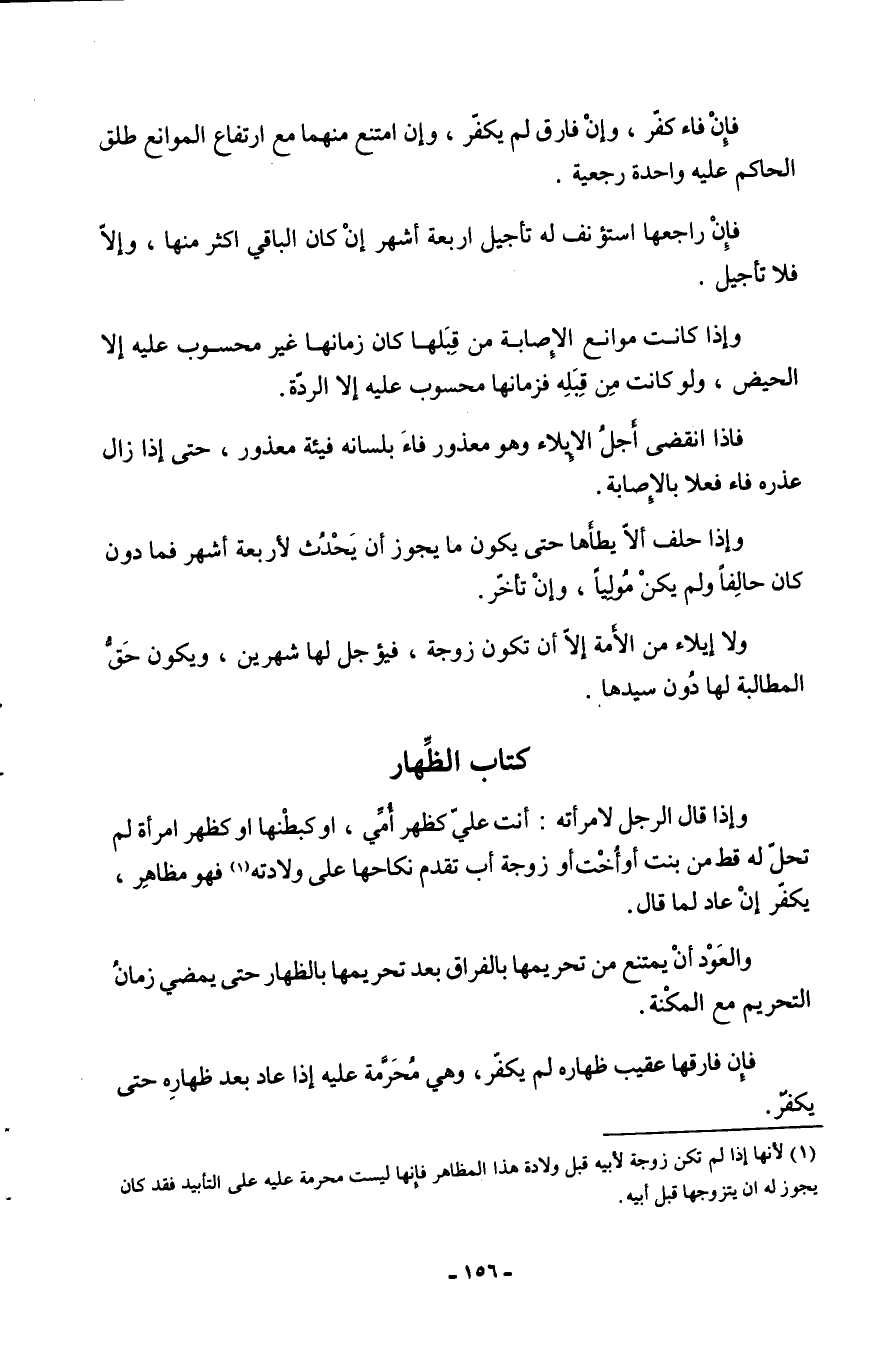 فإِنْ فاء كفّر ، وإنْ فارق لم يكفّر ، وإن امتنع منهما مع ارتفاع الموانع طلق
الحاكم عليه واحدة رجعية .
فإِنْ راجعها استؤنف له تأجيل اربعة أشهر إنْ كان الباقي اكثر منها ، وإلاّ
فلا تأجيل .
وإذا كانت موانع الإِصابة من قِبَلها كان زمانها غير محسوب عليه إلا
الحيض ، ولو كانت مِن قِبَلِه فزمانها محسوب عليه إلا الردّة .
فاذا انقضى أَجلُ الإِيلاء وهو معذور فاءَ بلسانه فيئة معذور ، حتى إذا زال
عذره فاء فعلا بالإِصابة .
وإذا حلف ألاّ يطأَها حتى يكون ما يجوز أن يَحْدُث لأربعة أشهر فما دون
كان حالِفاً ولم يكنْ مُولِياً ، وإنْ تأخّر .
ولا إيلاء من الأَمة إلاّ أن تكون زوجة ، فيؤجل لها شهرين ، ويكون حَقُّ
المطالبة لها دُون سيدها .
كتاب الظِّهار
وإذا قال الرجل لامرأته : أنت عليّ كظهر أُمِّي ، او كبطْنها او كظهر امرأة لم
تحلّ له قط من بنت أو أُخْت أو زوجة أب تقدم نكاحها على ولادته(١) فهو مظاهِر ،
يكفّر إنْ عاد لما قال .
والعَوْد أنْ يمتنع من تحريمها بالفراق بعد تحريمها بالظهار حتى يمضي زمانُ
التحريم مع المكْنة .
فإِن فارقها عقيب ظهاره لم يكفّر ، وهي مُحَرَّمة عليه إذا عاد بعد ظهارِه حتى
يكفّر .
(١) لأنها إذا لم تكن زوجة لأبيه قبل ولادة هذا المظاهر فإنها ليست محرمة عليه على التأبيد فقد كان
يجوز له ان يتزوجها قبل أبيه .
- ١٥٦ -